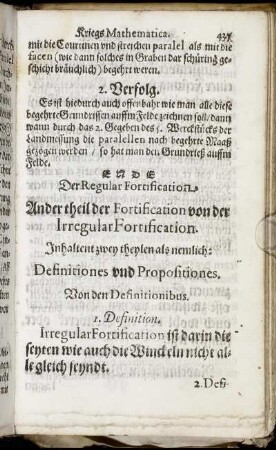 Kriegs Mathematica. 437
mit die Courtinen vnd streichen paralel als mit die
facen (wie dann solches in Graben dar schüring ge-
schicht bräuchlich) begehrt weren.
2. Verfolg.
Es ist hiedurch auch offenbahr wie man alle diese
begehrte Grundrissen auffm Felde zeichnen soll/dann
wann durch das 2. Gegeben des 5. Werckstücks der
Landmessung die paralellen nach begehrte Maaß
gezogen werden / so hat man den Grundrieß auffm
Felde.
ENDE
Der Regular Fortification.
Ander theil der Fortification von der
Irregular Fortification.
Inhaltent zwey theylen als nemlich:
Definitiones vnd Propositiones.
Von den Definitionibus.
1. Definition.
Irregular Fortification ist darin die
seyten wie auch die Winckeln nicht al-
le gleich seyndt.
2. Defi-